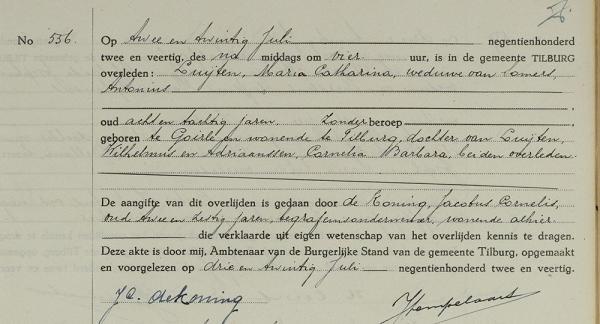 No 536.
Op twee en twintig Juli negentienhonderd
twee en veertig, des na middags om vier uur, is in de gemeente TILBURG
overleden: Luijten, Maria Catharina, weduwe van Somers,
Antonius
oud acht en tachtig jaren. Zonder beroep
geboren te Goirle en wonende te Tilburg, dochter van Luijten,
Wilhelmus en Adriaanssen, Cornelia Barbara, beiden overleden.
De aangifte van dit overlijden is gedaan door de Koning, Jacobus Cornelis,
oud twee en zestig jaren, begrafenisondernemer, wonende alhier
die verklaarde uit eigen wetenschap van het overlijden kennis te dragen.
Deze akte is door mij, Ambtenaar van de Burgerlijke Stand van de gemeente Tilburg, opgemaakt
en voorgelezen op drie en twintig Juli negentienhonderd twee en veertig.
J.C. de Koning